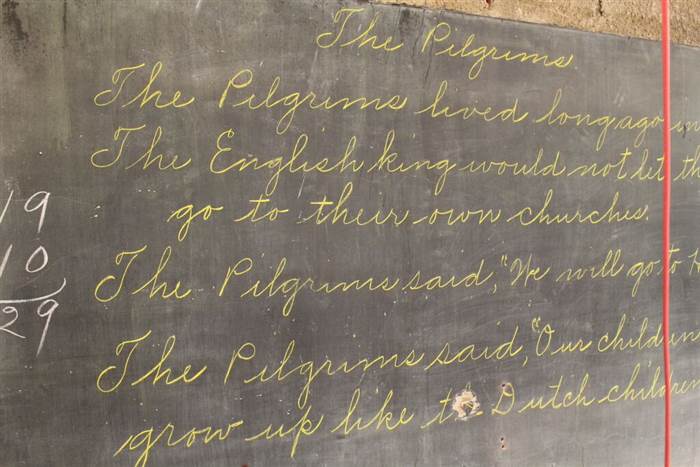 The Pilgrims
The Pilgrims lived long ago in
The English king would not let th
go to their own churches.
19
10
29
The Pilgrims said, "We will go to H
The Pilgrims said, "Our children
grow up like Dutch children